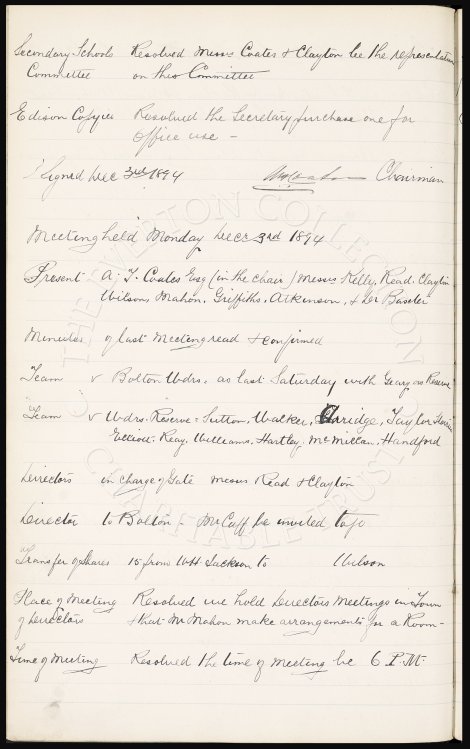 Secondary Schools Resolved Messrs Coates & Clayton be the representatives
Committee on this Committee
Edison Copyer Resolved the Secretary purchase one for
office use -
Signed Dec 3rd 1894 Chairman
Meeting held Monday Decr 3rd 1894
Present A. T. Coates Esq (in the chair) Messrs Kelly, Read, Clayton
Wilson, Mahon, Griffiths, Atkinson, & Dr Baxter
Minutes of last Meeting read & confirmed
Team v Bolton Wdrs. as last Saturday with Geary as Reserve
Team v Wdrs. Reserve: Sutton, Walker, Arridge, Taylor
Elliott, Keay, Williams, Hartley, McMillan, Handford
Directors in charge of Gate Messrs Read & Clayton
Director to Bolton - Mr Cuff be invited to go
Transfer of Shares 15 from WH Jackson to Wilson
Place of Meeting Resolved we hold Directors Meetings in Town
of Directors & that Mr Mahon make arrangements for a Room -
Time of Meeting Resolved the time of Meeting be 6 P.M.
THE EVERTON COLLECTION
CHARITABLE TRUST